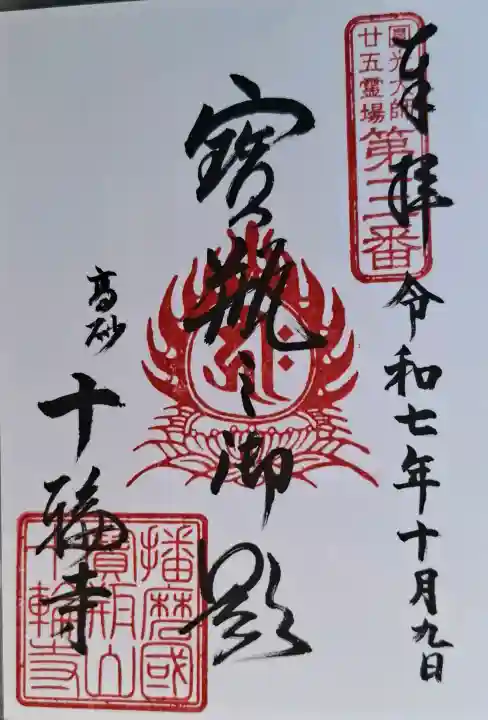 圓光大師
廿五霊場
第三番
奉拝
令和七年十月九日
寳瓶之御影
高砂
十輪寺
播磨國
寳瓶山
十輪寺